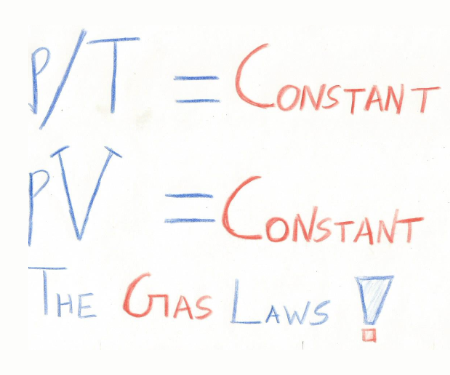 P/T = CONSTANT
PV = CONSTANT
THE GAS LAWS !